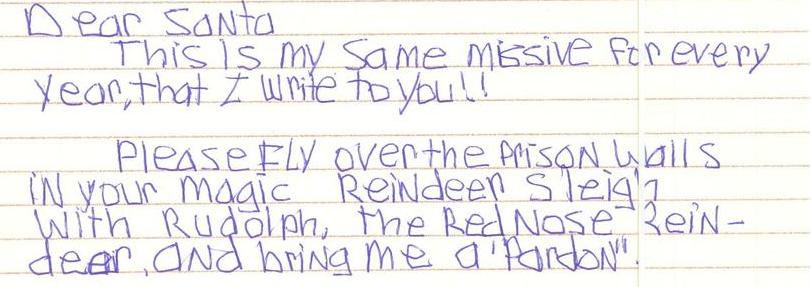 Dear Santa
This Is my Same missive for every
year, that I write to you!!
Please Fly over the prison walls
in your magic Reindeer Sleigh
With Rudolph, the Red Nose Rein-
deer, and bring me a "Pardon".